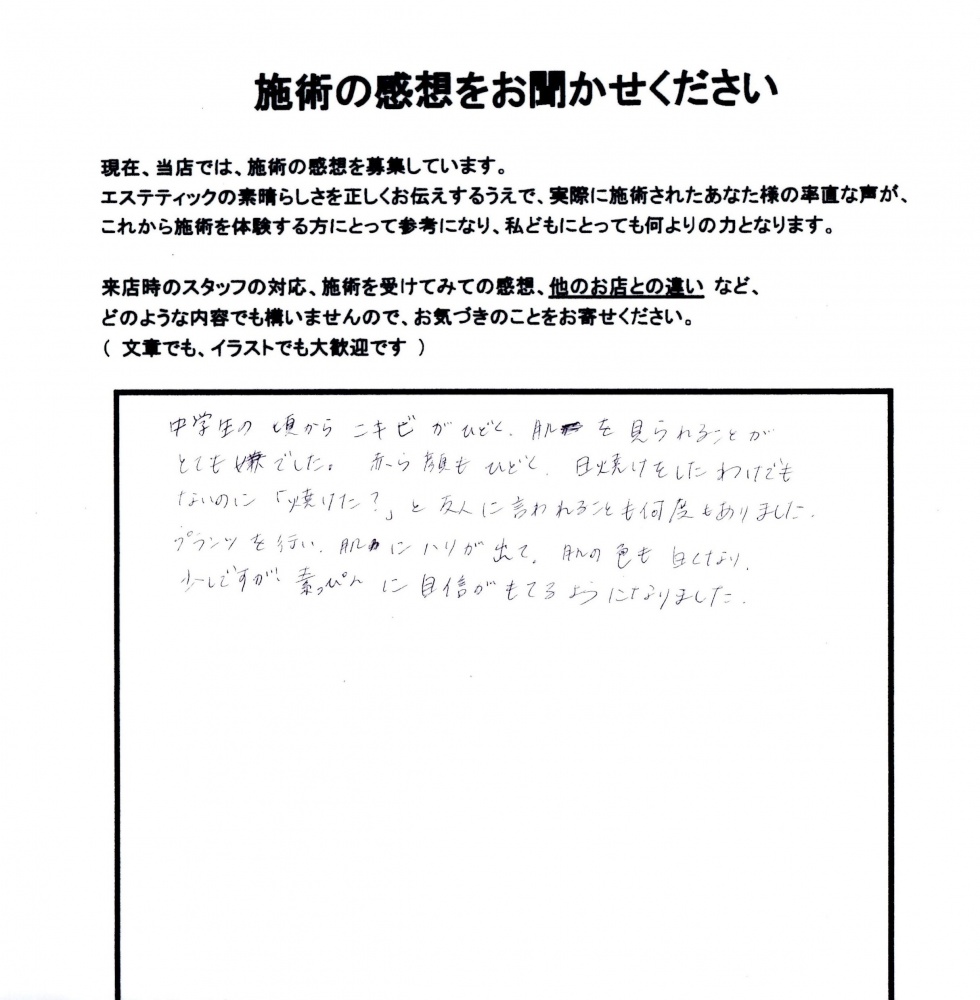 施術の感想をお聞かせください
現在、当店では、施術の感想を募集しています。
エステティックの素晴らしさを正しくお伝えするうえで、実際に施術されたあなた様の率直な声が、
これから施術を体験する方にとって参考になり、私どもにとっても何よりの力となります。
来店時のスタッフの対応、施術を受けてみての感想、他のお店との違い など、
どのような内容でも構いませんので、お気づきのことをお寄せください。
( 文章でも、イラストでも大歓迎です )
中学生の頃からニキビがひどく、肌を見られることが
とても嫌でした。赤ら顔もひどく、日焼けをしたわけでも
ないのに「焼けた?」と友人に言われることも何度もありました。
プランツを行い、肌にハリが出て、肌の色も白くなり、
少しですが素っぴんに自信がもてるようになりました。